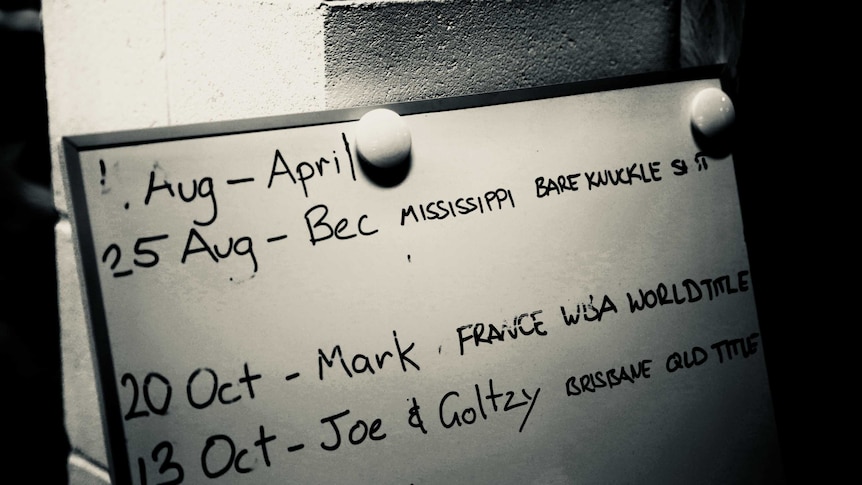 Aug - April
25 Aug - Bec MISSISSIPPI BARE KNUCKLE
20 Oct - Mark FRANCE WBA WORLD TITLE
13 Oct - Joe & Goltzy BRISBANE QLD TITLE